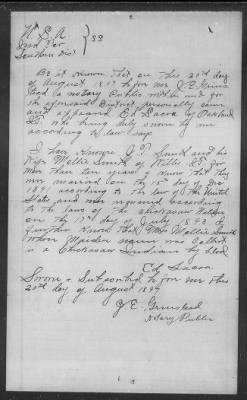 U. S. A
Ind Ter } SS
Southern Dis
Be it Known that on this 20th day
of August 1897 before me J. E. Grinstead
a Notary Public within and for
the aforesaid District personally came
and appeared Ed Sacra of Oakland
I.T. who being duly sworn by me
according to law says
I have Known J. F. Smith and his
wife Mollie Smith of Willis I.T. for
more than ten years & know that they
were married on the 15th day of Dec
1891 according to the law of the United
States and were remarried according
to the laws of the Chickasaw Nation
on the 17th day of July 1893 I
further Know that Mrs Mollie Smith
whose maiden name was
is a Chickasaw Indian by blood
Ed Sacra
Sworn & Subscribed to before me this
20th day of August 1897
J. E. Grinstead
Notary Public